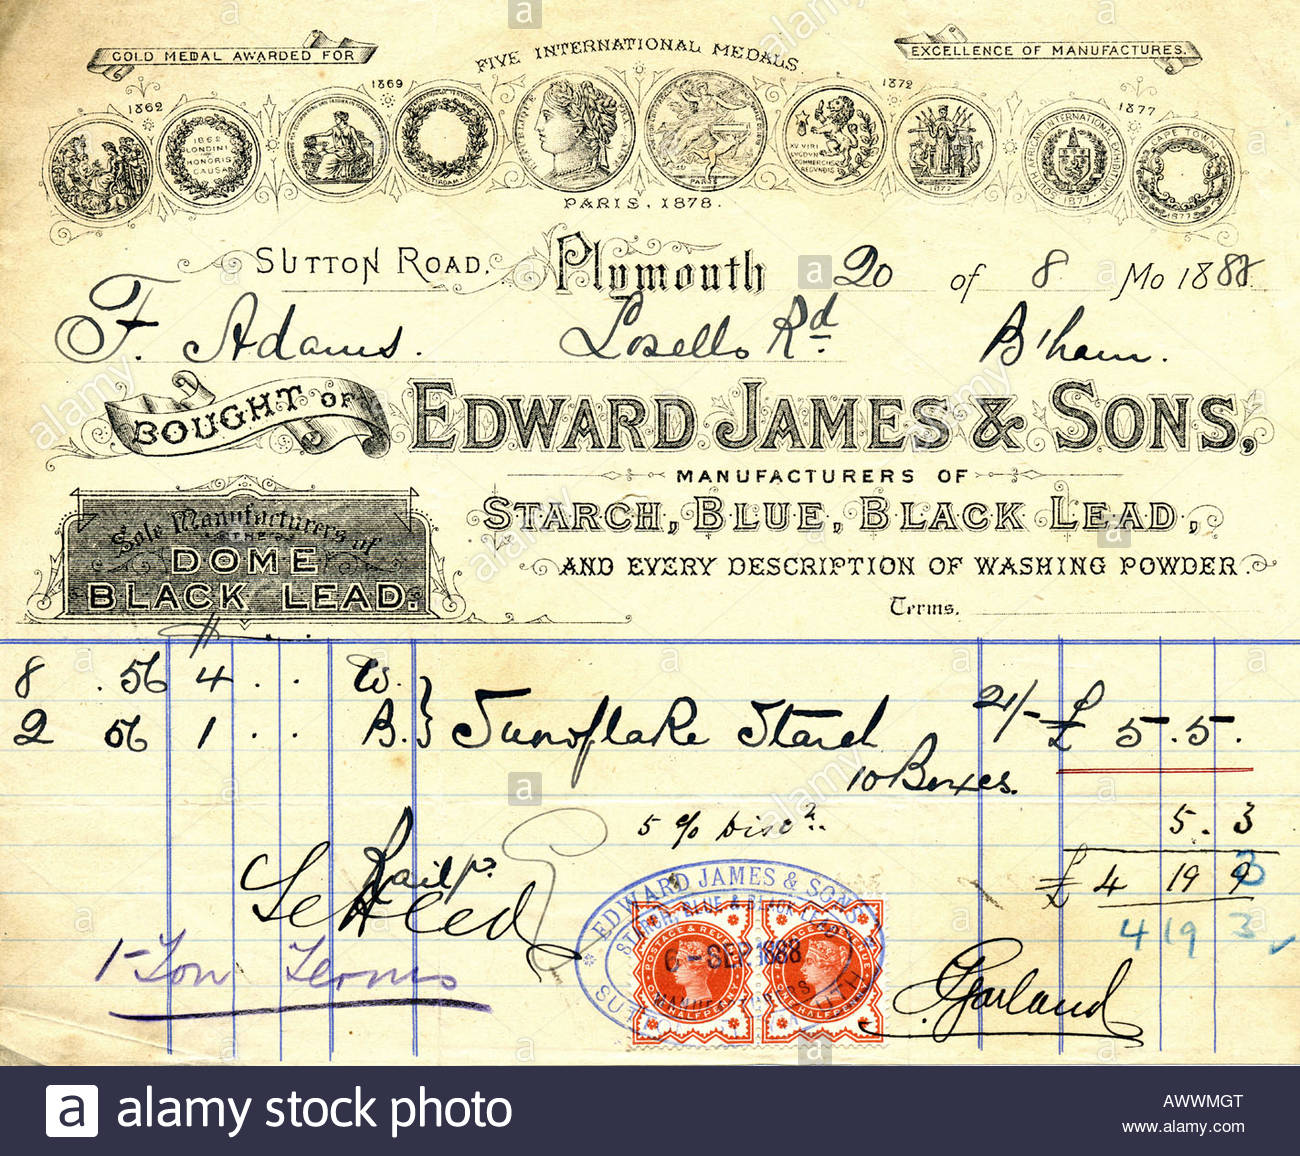 GOLD MEDAL AWARDED FOR
FIVE INTERNATIONAL MEDALS
EXCELLENCE OF MANUFACTURES.
1862 1869 1872 1877
1862 LONDINI HONORIS CAUSA
PARIS
1872
SOUTH AFRICAN INTERNATIONAL EXHIBITION 1877
CAPE TOWN 1877
PARIS, 1878.
SUTTON ROAD, Plymouth 20 of 8 Mo 1888
F. Adams. Lozells Rd. B'ham.
BOUGHT OF EDWARD JAMES & SONS,
MANUFACTURERS OF
STARCH, BLUE, BLACK LEAD,
AND EVERY DESCRIPTION OF WASHING POWDER.
Sole Manufacturers of
THE
DOME
BLACK LEAD.
Terms.
8 . 56 4 . . W.
2 56 1 . . B. } Snowflake Starch 21/- £ 5 . 5 .
10 Boxes.
5 % Disct. 5 . 3
£ 4 19 9
4 19 3
Railp.
Settled
1-Ton Terms
EDWARD JAMES & SONS
STARCH, BLUE & BLACK LEAD
MANUFACTURERS
6 - SEP 1888
POSTAGE & REVENUE
ONE HALFPENNY
POSTAGE & REVENUE
ONE HALFPENNY
Garland
a alamy stock photo
AWWMGT
www.alamy.com